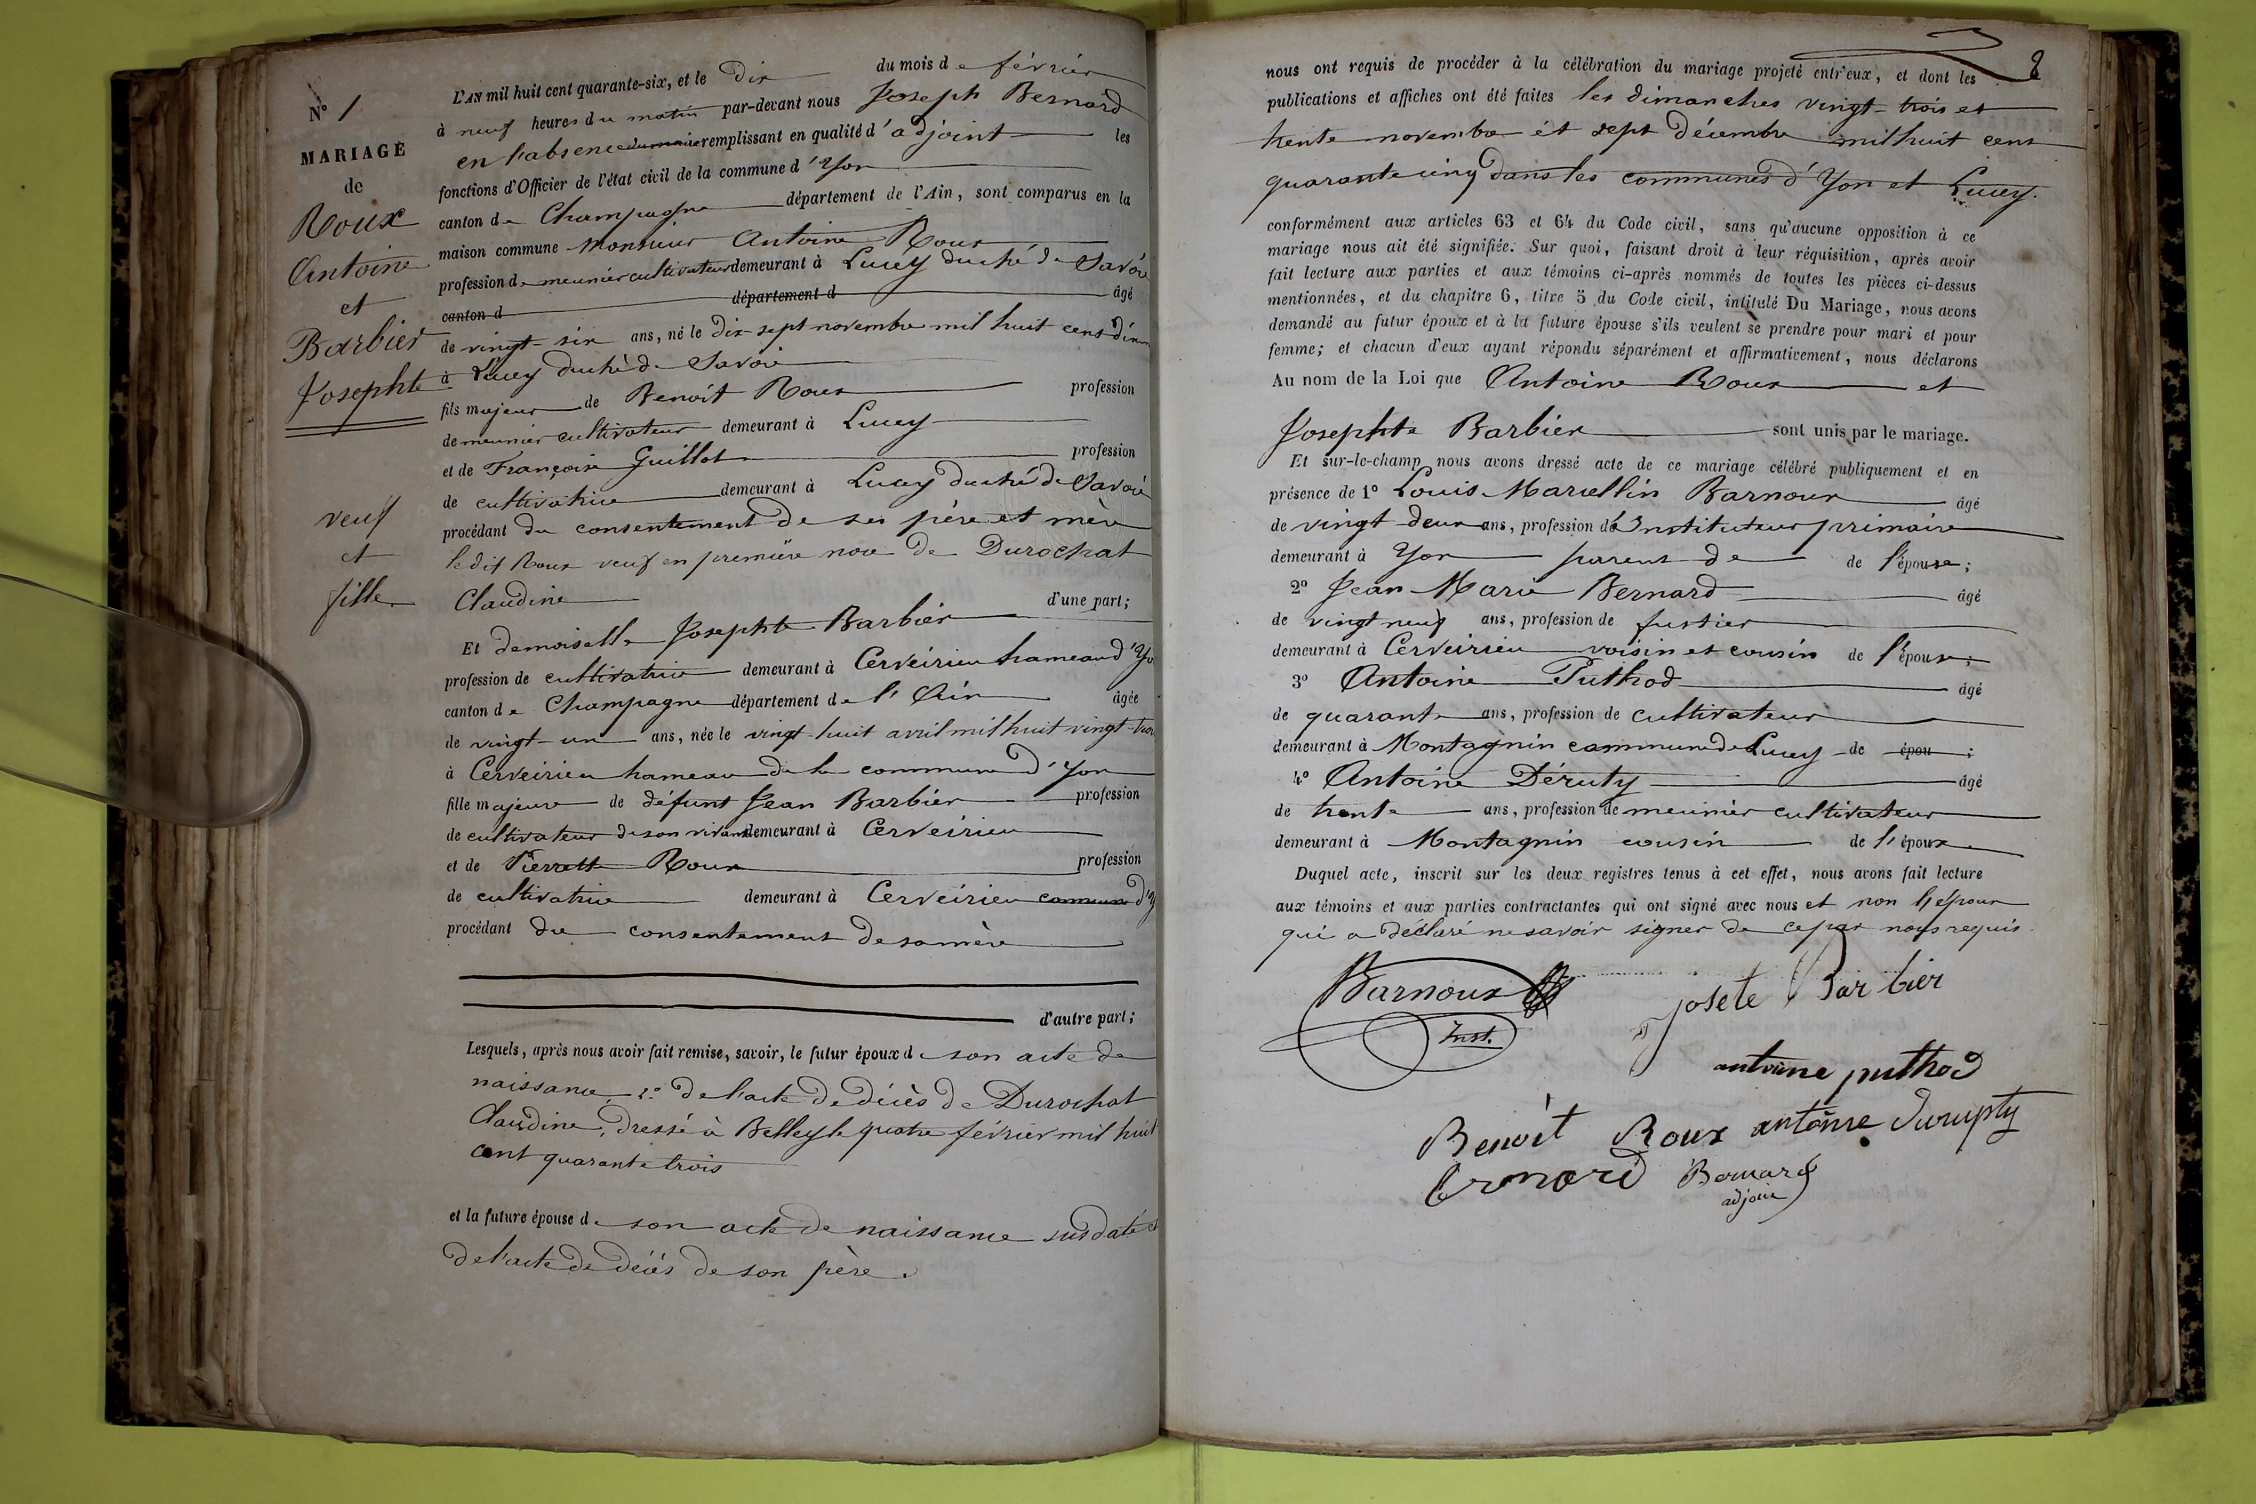 N° 1
MARIAGE
de
Roux
Antoine
et
Barbier
Josephte
veuf
et
fille
L'AN mil huit cent quarante-six, et le dix du mois de février
à neuf heures du matin par-devant nous Joseph Bernard
en l'absence du maire remplissant en qualité d'adjoint les
fonctions d'Officier de l'état civil de la commune d'Yon
canton de Champagne département de l'Ain, sont comparus en la
maison commune Monsieur Antoine Roux
profession de meunier cultivateur demeurant à Lucéy duché de Savoie
canton d département d âgé
de vingt-six ans, né le dix-sept novembre mil huit cent
à Lucey duché de Savoie
fils majeur de Benoît Roux profession
de meunier cultivateur demeurant à Lucey
et de Françoise Guillot profession
de cultivatrice demeurant à Lucey duché de Savoie
procédant du consentement de ses père et mère
le dit Roux veuf en première noce de Durochat
Claudine d'une part;
Et demoiselle Josephte Barbier
profession de cultivatrice demeurant à Cerveirieu hameau d'Yo
canton de Champagne département de l'Ain âgée
de vingt-un ans, née le vingt-huit avril mil huit vingt-
à Cerveirieu hameau de la commune d'Yon
fille majeure de défunt Jean Barbier profession
de cultivateur de son vivant demeurant à Cerveirieu
et de Pierrette Roux profession
de cultivatrice demeurant à Cerveirieu commune d'Y
procédant du consentement de sa mère
d'autre part;
Lesquels, après nous avoir fait remise, savoir, le futur époux de son acte de
naissance 2° de l'acte de décès de Durochat
Claudine, dressé à Belley le quatre février mil huit
cent quarante trois
et la future épouse de son acte de naissance susdaté et
de l'acte de décés de son père.
8
nous ont requis de procéder à la célébration du mariage projeté entr'eux, et dont les
publications et affiches ont été faites les dimanches vingt-trois et
trente novembre et sept décembre mil huit cent
quarante cinq dans les communes d'Yon et Lucey.
conformément aux articles 63 et 64 du Code civil, sans qu'aucune opposition à ce
mariage nous ait été signifiée. Sur quoi, faisant droit à leur réquisition, après avoir
fait lecture aux parties et aux témoins ci-après nommés de toutes les pièces ci-dessus
mentionnées, et du chapitre 6, titre 5 du Code civil, intitulé Du Mariage, nous avons
demandé au futur époux et à la future épouse s'ils veulent se prendre pour mari et pour
femme; et chacun d'eux ayant répondu séparément et affirmativement, nous déclarons
Au nom de la Loi que Antoine Roux et
Josephte Barbier sont unis par le mariage.
Et sur-le-champ nous avons dressé acte de ce mariage célébré publiquement et en
présence de 1° Louis Marcellin Barnoux âgé
de vingt deux ans, profession d'Instituteur primaire
demeurant à Yon parent de de l'épouse;
2° Jean Marie Bernard âgé
de vingt neuf ans, profession de fustier
demeurant à Cerveirieu voisin et cousin de l'épouse;
3° Antoine Puthod âgé
de quarante ans, profession de cultivateur
demeurant à Montagnin commune de Lucey de épou ;
4° Antoine Déruty âgé
de trente ans, profession de meunier cultivateur
demeurant à Montagnin cousin de l'époux
Duquel acte, inscrit sur les deux registres tenus à cet effet, nous avons fait lecture
aux témoins et aux parties contractantes qui ont signé avec nous et non l'époux
qui a déclaré ne savoir signer de ce par nous requis.
Barnoux
Inst.
Josete Barbier
antoine puthod
Benoit Roux antoine
Bernard
adjoin